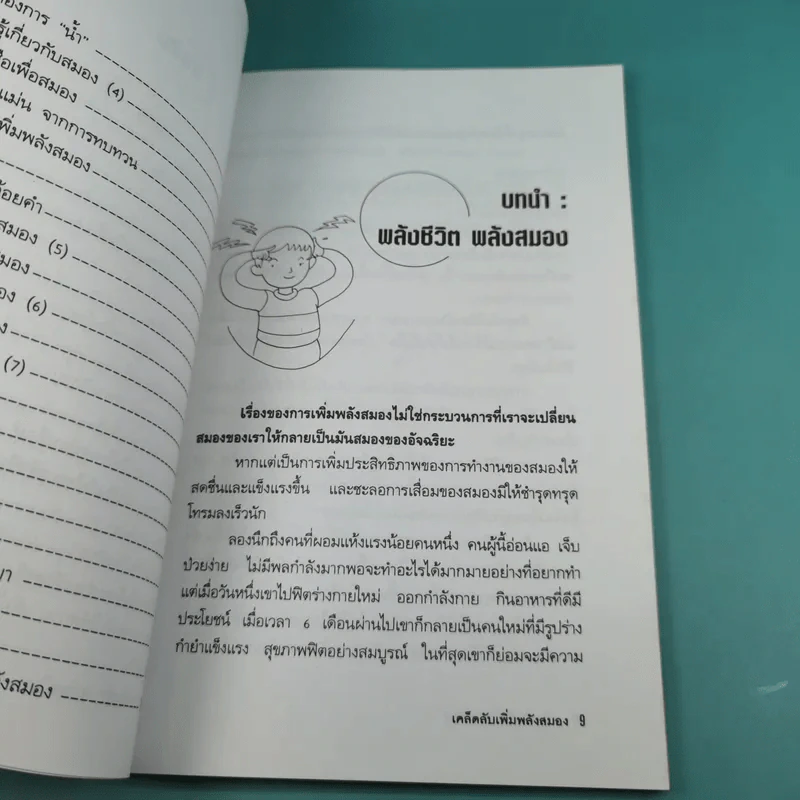 องการ "น้ำ"
รู้เกี่ยวกับสมอง (4)
อเพื่อสมอง
แม่น จากการทบทวน
พิ่มพลังสมอง
้อยคำ
สมอง (5)
มอง
อง (6)
ง
(7)
มา
ังสมอง
บทนำ :
พลังชีวิต พลังสมอง
เรื่องของการเพิ่มพลังสมองไม่ใช่กระบวนการที่เราจะเปลี่ยน
สมองของเราให้กลายเป็นมันสมองของอัจฉริยะ
หากแต่เป็นการเพิ่มประสิทธิภาพของการทำงานของสมองให้
สดชื่นและแข็งแรงขึ้น และชะลอการเสื่อมของสมองมิให้ชำรุดทรุด
โทรมลงเร็วนัก
ลองนึกถึงคนที่ผอมแห้งแรงน้อยคนหนึ่ง คนผู้นี้อ่อนแอ เจ็บ
ป่วยง่าย ไม่มีพลกำลังมากพอจะทำอะไรได้มากมายอย่างที่อยากทำ
แต่เมื่อวันหนึ่งเขาไปฟิตร่างกายใหม่ ออกกำลังกาย กินอาหารที่ดีมี
ประโยชน์ เมื่อเวลา 6 เดือนผ่านไปเขาก็กลายเป็นคนใหม่ที่มีรูปร่าง
กำยำแข็งแรง สุขภาพฟิตอย่างสมบูรณ์ ในที่สุดเขาก็ย่อมจะมีความ
เคล็ดลับเพิ่มพลังสมอง 9